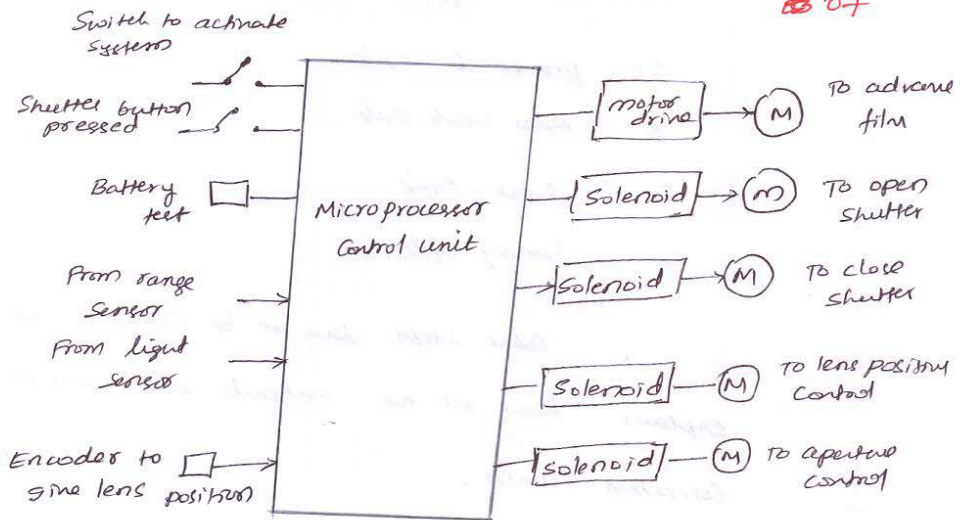 07
Switch to activate
system
Shutter button
pressed
Battery
test
From range
sensor
From light
sensor
Encoder to
give lens position
Microprocessor
Control unit
motor
drive
M
To advance
film
Solenoid
M
To open
shutter
Solenoid
M
To close
shutter
Solenoid
M
To lens position
Control
Solenoid
M
To aperture
control